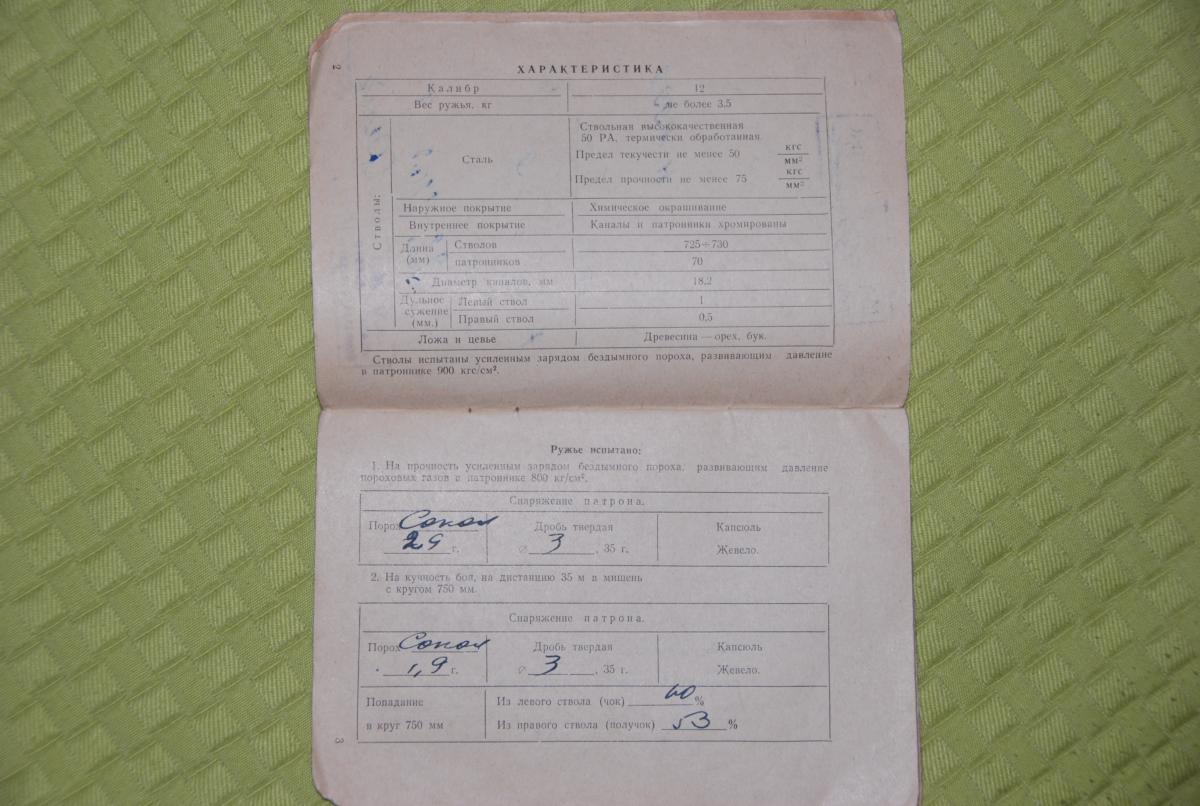 2
ХАРАКТЕРИСТИКА
Калибр 12
Вес ружья, кг не более 3,5
Стволы:
Сталь
Ствольная высококачественная
50 РА, термически обработанная.
Предел текучести не менее 50 кгс/мм²
Предел прочности не менее 75 кгс/мм²
Наружное покрытие Химическое окрашивание
Внутреннее покрытие Каналы и патронники хромированы
Длина (мм) Стволов 725÷730
патронников 70
Диаметр каналов, мм 18,2
Дульное сужение (мм.) Левый ствол 1
Правый ствол 0,5
Ложа и цевье Древесина — орех, бук.
Стволы испытаны усиленным зарядом бездымного пороха, развивающим давление
в патроннике 900 кгс/см².
Ружье испытано:
1. На прочность усиленным зарядом бездымного пороха, развивающим давление
пороховых газов в патроннике 800 кг/см².
Снаряжение патрона.
Порох Сокол Дробь твердая Капсюль
г. ⌀ 3, 35 г. Жевело.
2. На кучность боя, на дистанцию 35 м в мишень
с кругом 750 мм.
Снаряжение патрона.
Порох Сокол Дробь твердая Капсюль
1,9 г. ⌀ 3, 35 г. Жевело.
Попадание Из левого ствола (чок) 60 %
в круг 750 мм Из правого ствола (получок) 53 %
3